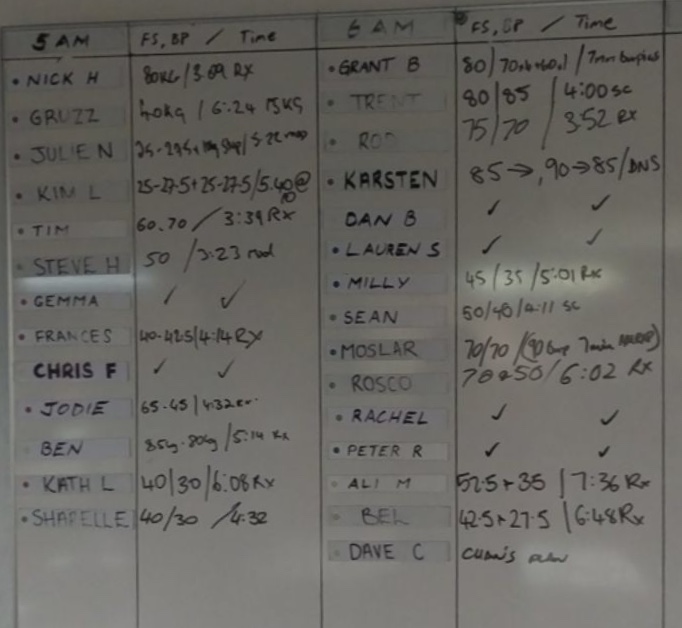 5 AM FS, BP / Time
• NICK H 80KG / 3:09 RX
• GRUZZ 40KG / 6:24 15KG
• JULIE N
• KIM L 25-27.5+25-27.5/5.40@
• TIM 60.70 / 3:39 RX
• STEVE H 50 / 3:23 mod
• GEMMA ✓ ✓
• FRANCES 40-42.5/4:14 RX
CHRIS F ✓ ✓
• JODIE 65-45 / 4:32
BEN 85kg-80kg / 5:14 RX
• KATH L 40/30/6:08 RX
• SHAPELLE 40/30 / 4:32
6 AM FS, BP / Time
• GRANT B 80/ / 7min burpees
• TRENT 80/85 / 4:00 SC
• ROD 75/70 / 3:52 RX
• KARSTEN 85→, 90→85/DNS
DAN B ✓ ✓
• LAUREN S ✓ ✓
• MILLY 45/35/5:01 RX
• SEAN 50/40/4:11 SC
• MOSLAR 70/70 /
• ROSCO 70+50/6:02 RX
• RACHEL ✓ ✓
• PETER R ✓ ✓
• ALI M 52.5+35 / 7:36 RX
• BEL 42.5+27.5 / 6:48 RX
• DAVE C